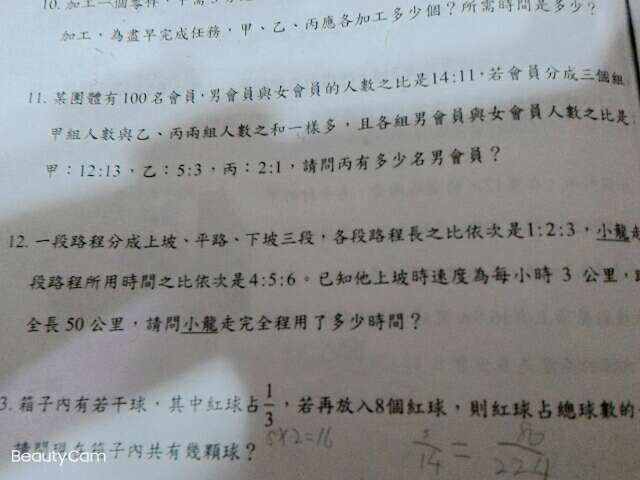 10. 加工一個零件，
加工，為盡早完成任務，甲、乙、丙應各加工多少個？所需時間是多少？
11. 某團體有100名會員，男會員與女會員的人數之比是14:11，若會員分成三個組
甲組人數與乙、丙兩組人數之和一樣多，且各組男會員與女會員人數之比是：
甲：12:13，乙：5:3，丙：2:1，請問丙有多少名男會員？
12. 一段路程分成上坡、平路、下坡三段，各段路程長之比依次是1:2:3，小龍走
段路程所用時間之比依次是4:5:6。已知他上坡時速度為每小時 3 公里，
全長50公里，請問小龍走完全程用了多少時間？
3. 箱子內有若干球，其中紅球占1/3，若再放入8個紅球，則紅球占總球數的
箱子內共有幾顆球？ 8×2=16
5/14 = 80/224
BeautyCam